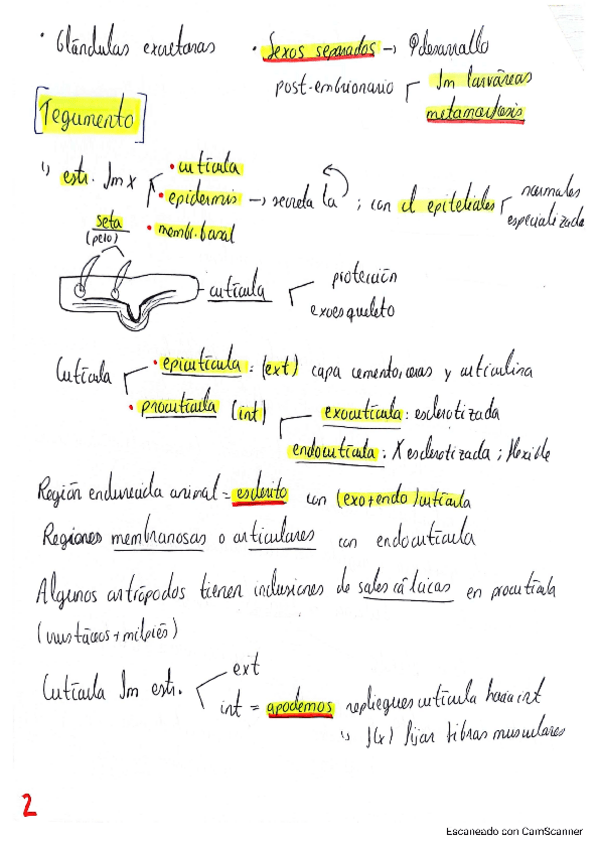 · Glándulas excretoras
· Sexos separados → desarrollo
post-embrionario
Im larváreas
metamorfosis
Tegumento
estr. Im x
· cutícula
· epidermis → secreta la ; con cl epiteliales
normales
especializada
· membr. basal
seta
(pelo)
cutícula
protección
exoesqueleto
Cutícula
· epicutícula: (ext) capa cemento, ceras y cuticulina
· procutícula (int)
exocutícula: esclerotizada
endocutícula: X esclerotizada; flexible
Región endurecida animal = esclerito con (exo+endo) cutícula
Regiones membranosas o articulares con endocutícula
Algunos artrópodos tienen inclusiones de sales cálcicas en procutícula
(crustáceos + milpiés)
Cutícula Im estr.
ext
int = apodemos repliegues cutícula hacia int
f(x) fijar fibras musculares
2
Escaneado con CamScanner